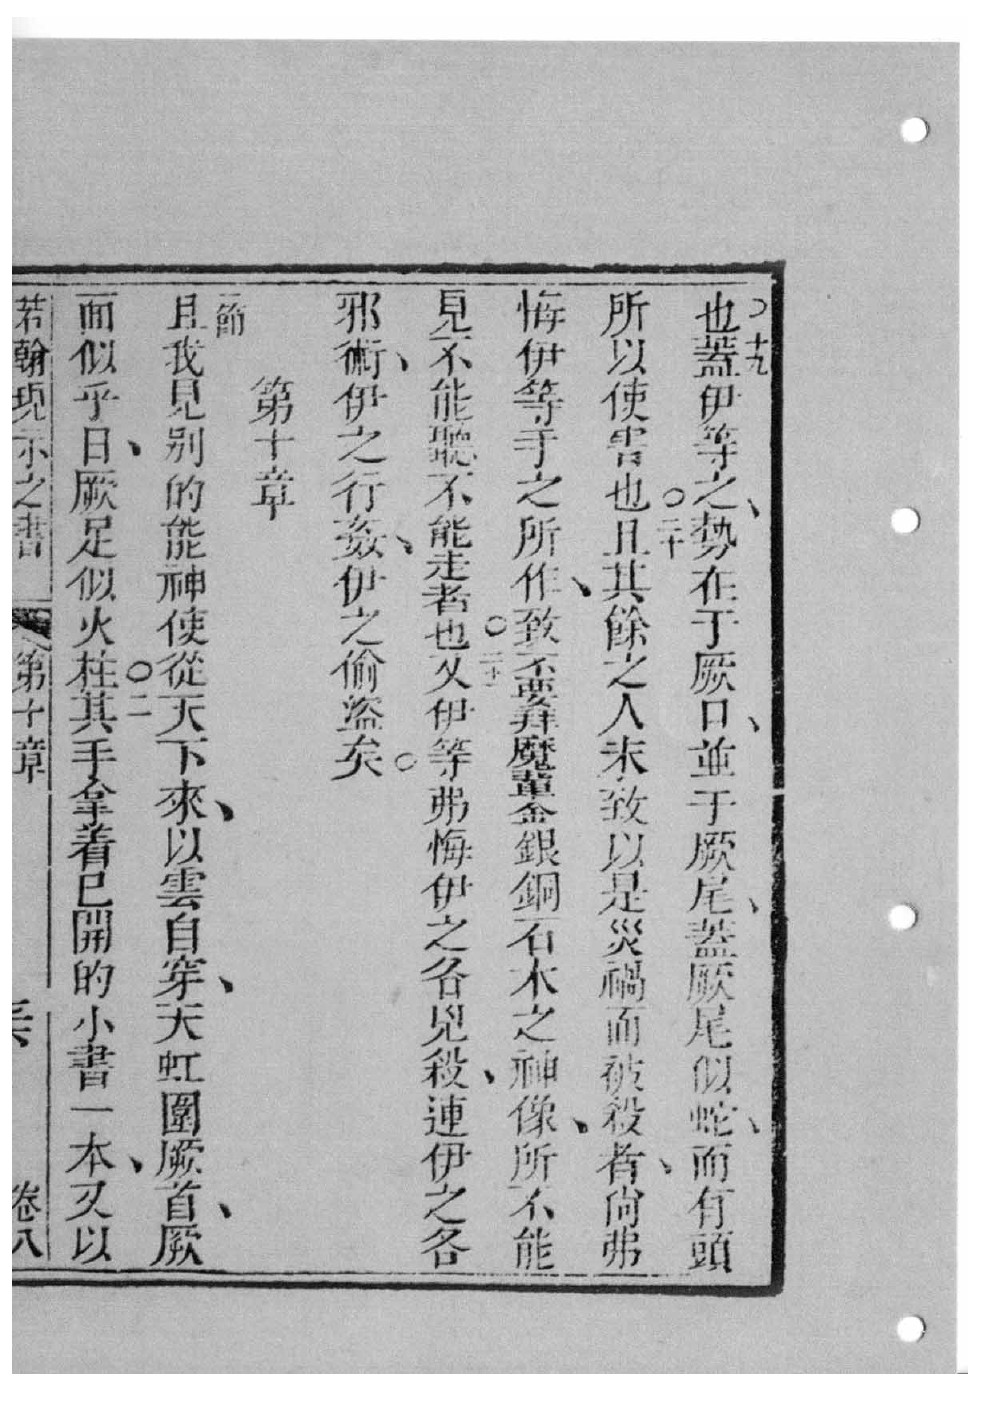 ○十九
也蓋伊等之、勢在于厥口、並于厥尾、蓋厥尾似蛇、而有頭
○二十
所以使害也且其餘之人未致以是災禍而被殺者、尚弗
悔伊等手之所作、致不要拜魔輩金銀銅石木之神像、所不能
○二十一
見不能聽不能走者也又伊等弗悔伊之各兇殺、連伊之各
邪術、伊之行姦、伊之偷盜矣○
第十章
一節
且我見別的能神使從天下來、以雲自穿、天虹圍厥首、厥
○二
面似乎日、厥足似火柱其手拿着已開的小書一本、又以
若翰現示之書 第十章 卷八